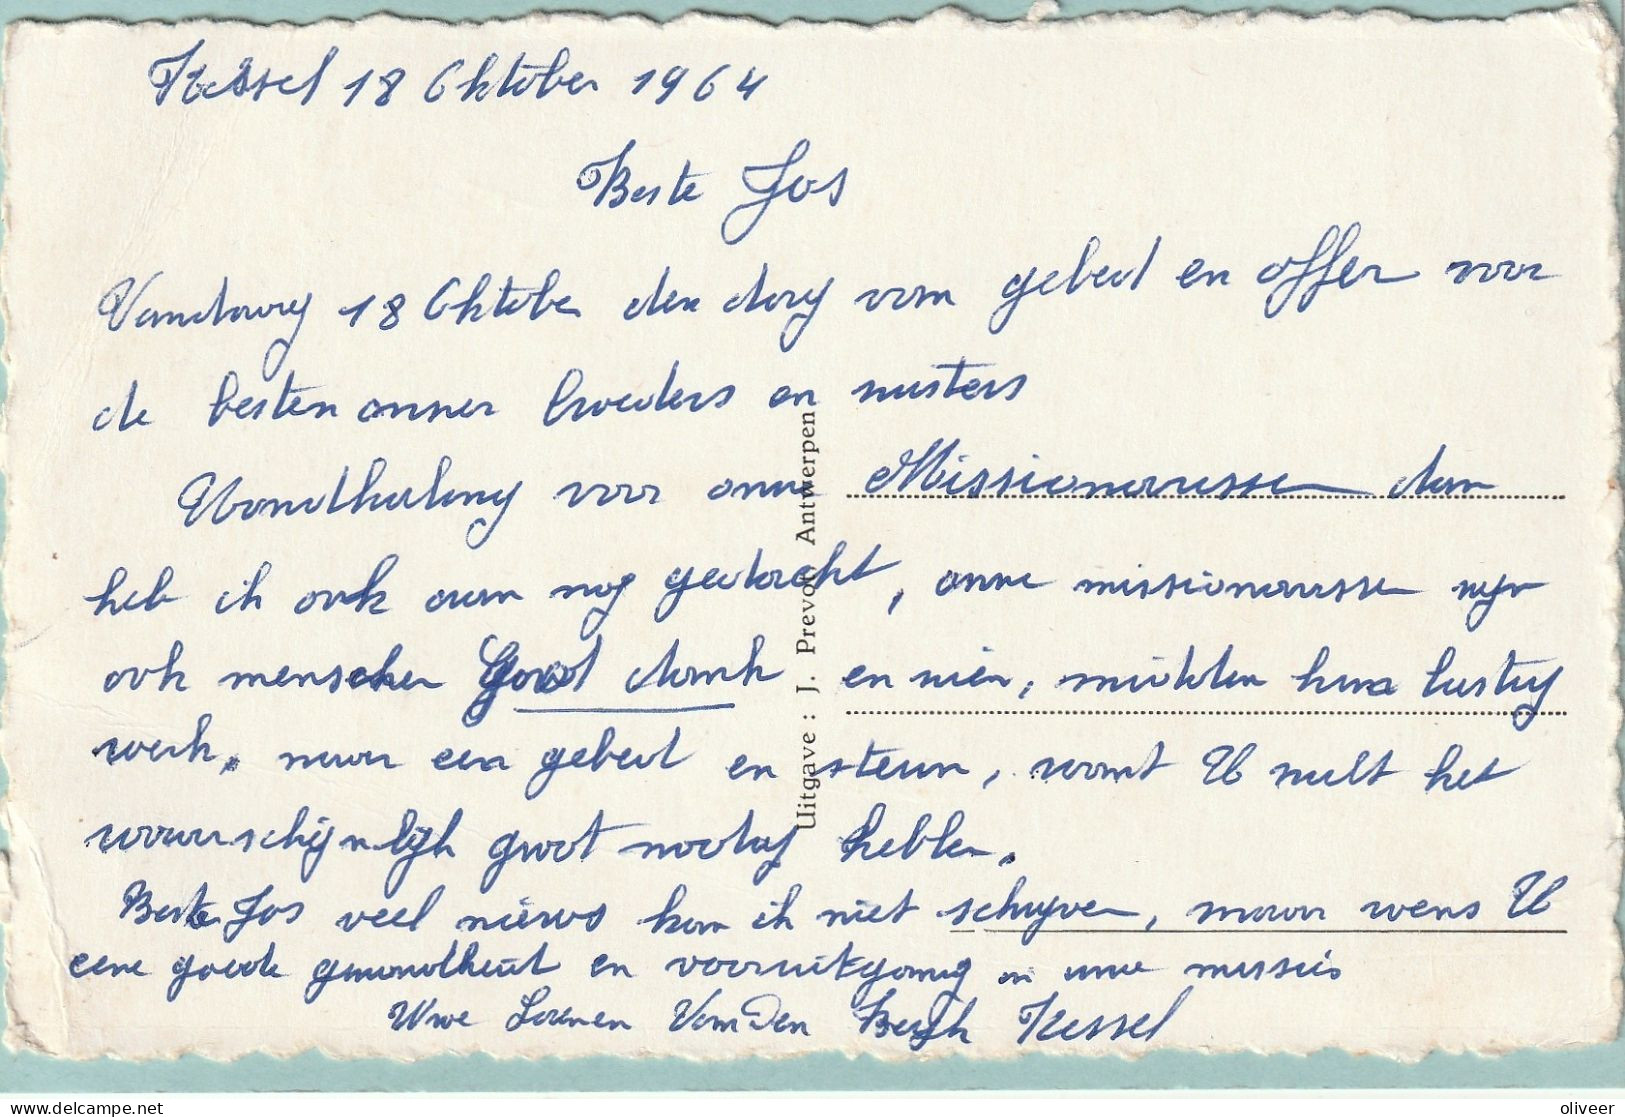 Kessel 18 Oktober 1964
Beste Jos
Vandaag 18 Oktober den dag van gebed en offer voor
de besten onzer broeders en zusters
Wondheling voor onze Missionarissen dan
heb ik ook aan nog gedacht, onze missionarissen zijn
ook menschen God dank en zien, midden hun lastig
werk, naar een gebed en steun, want U zult het
waarschijnlijk groot nodig hebben.
Beste Jos veel nieuws kan ik niet schrijven, maar wens U
eene goede gezondheid en vooruitgang in uwe missie
Uwe Van Den Bergh Kessel
Uitgave : J. Prevot Antwerpen
oliveer